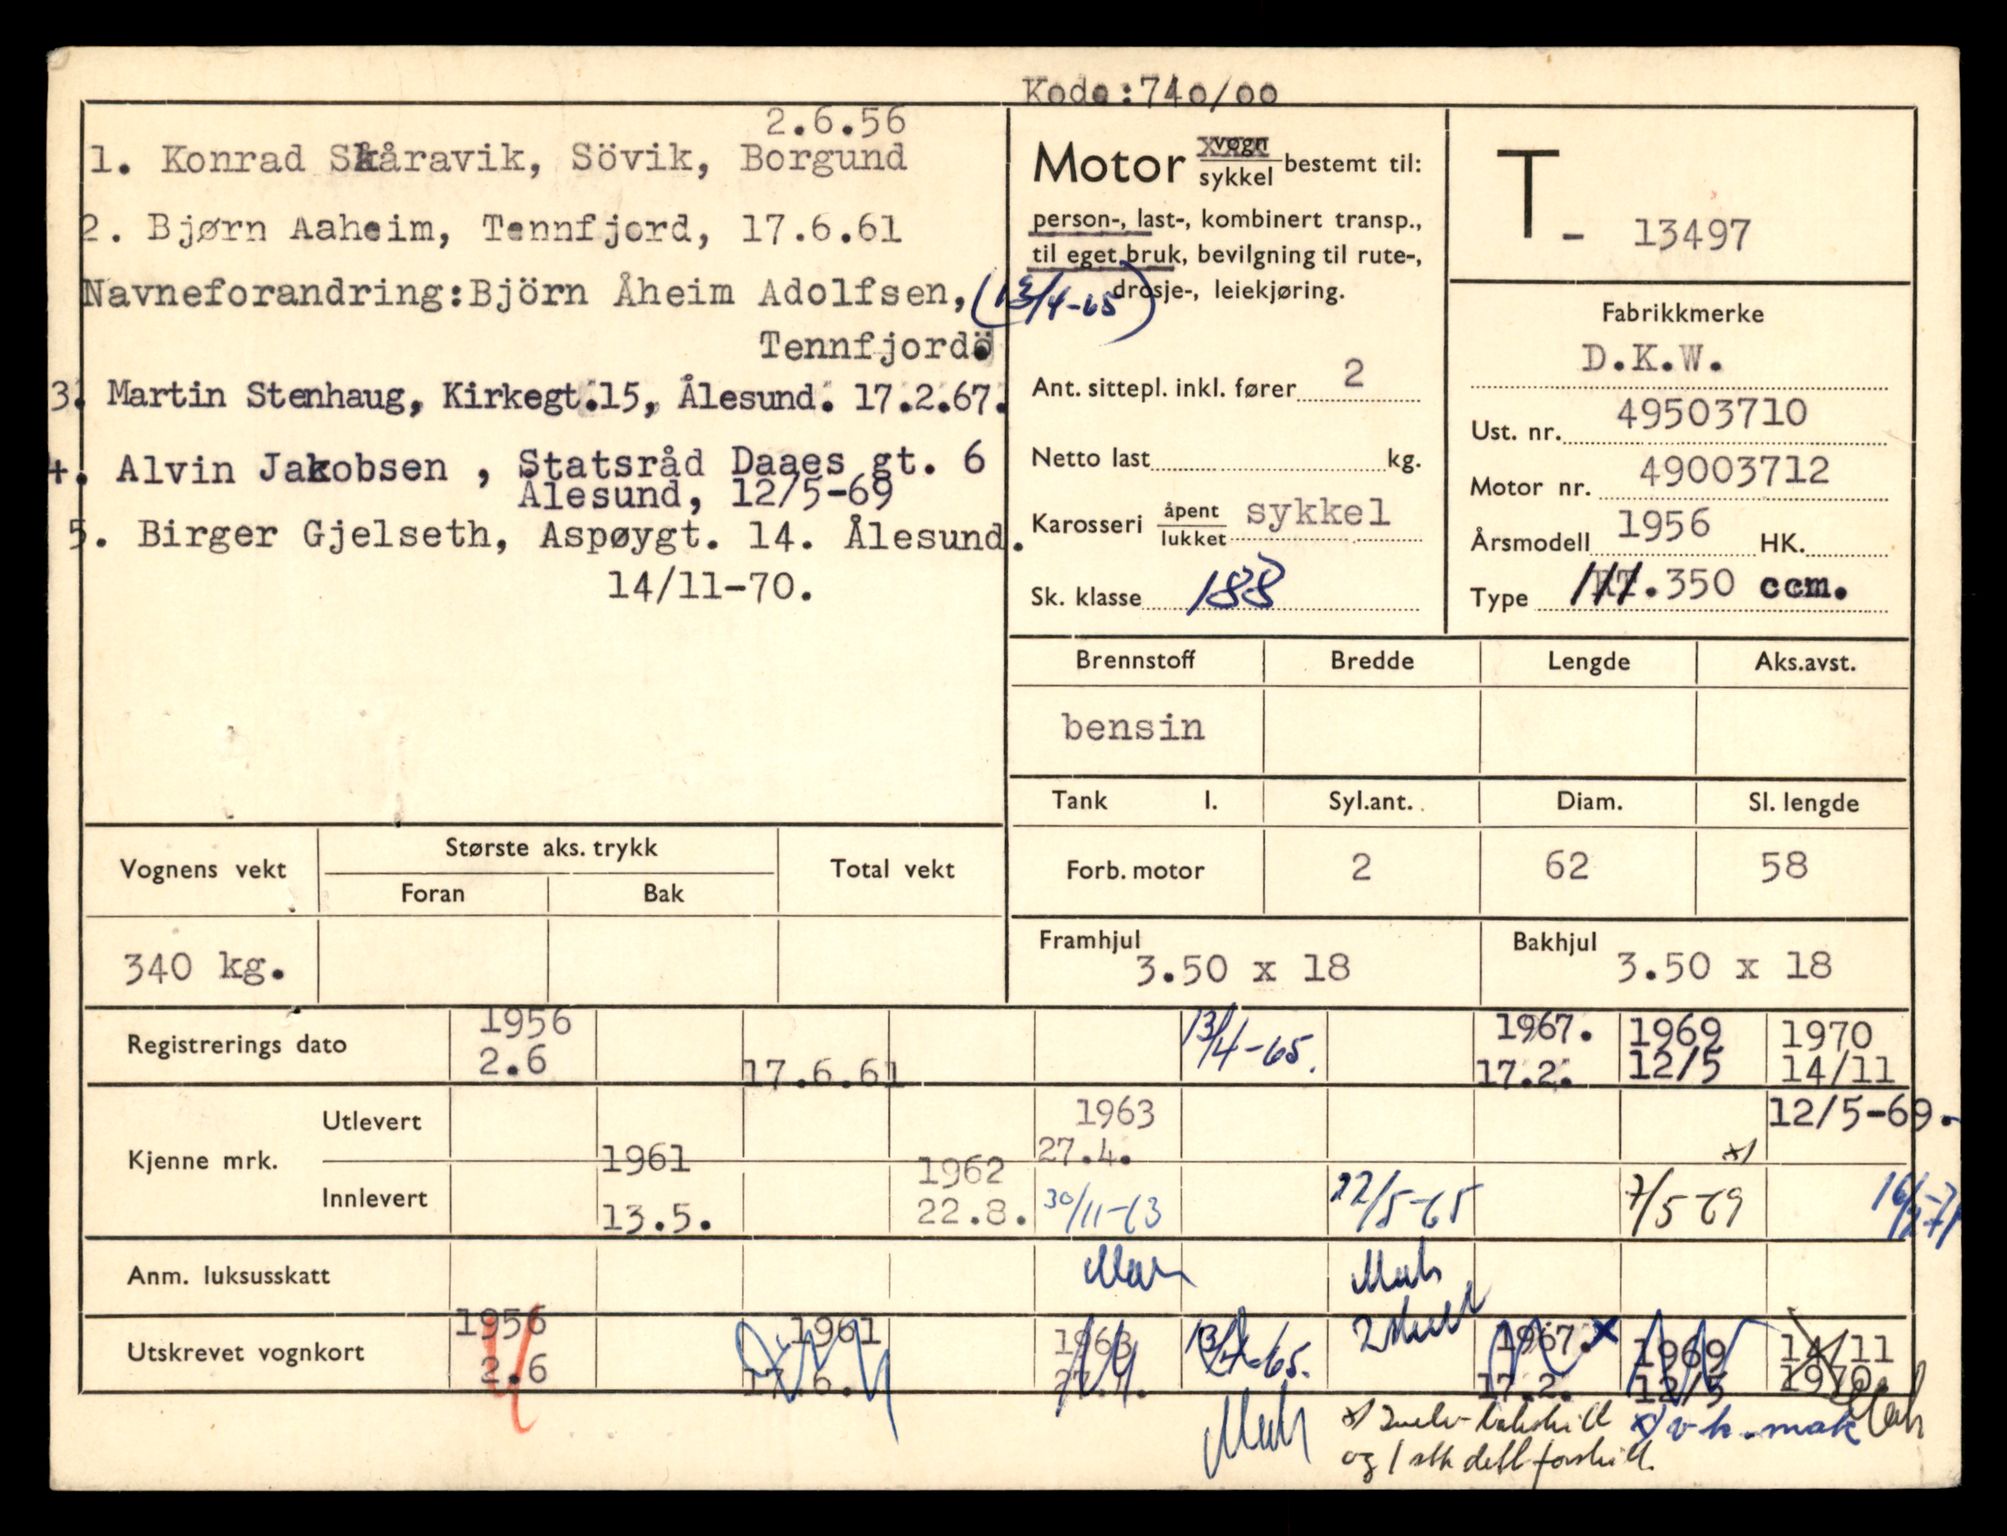 Kode:740/00
2.6.56
1. Konrad Skåravik, Sövik, Borgund
2. Bjørn Aaheim, Tennfjord, 17.6.61
Navneforandring:Björn Åheim Adolfsen, (13/4-65)
Tennfjord
3. Martin Stenhaug, Kirkegt.15, Ålesund. 17.2.67.
4. Alvin Jakobsen , Statsråd Daaes gt. 6
Ålesund, 12/5-69
5. Birger Gjelseth, Aspøygt. 14. Ålesund.
14/11-70.
Motor vogn/sykkel bestemt til:
person-, last-, kombinert transp.,
til eget bruk, bevilgning til rute-,
drosje-, leiekjøring.
Ant. sittepl. inkl. fører 2
Netto last kg.
Karosseri åpent/lukket sykkel
Sk. klasse 188
T - 13497
Fabrikkmerke
D.K.W.
Ust. nr. 49503710
Motor nr. 49003712
Årsmodell 1956 HK.
Type RT.350 ccm.
Brennstoff Bredde Lengde Aks.avst.
bensin
Tank l. Syl.ant. Diam. Sl. lengde
Forb. motor 2 62 58
Framhjul 3.50 x 18 Bakhjul 3.50 x 18
Vognens vekt Største aks. trykk Total vekt
Foran Bak
340 kg.
Registrerings dato 1956 2.6 17.6.61 13/4-65. 1967. 17.2. 1969 12/5 1970 14/11
Kjenne mrk. Utlevert 1963 27.4. 12/5-69.
Innlevert 1961 13.5. 1962 22.8. 30/11-63 22/5-65 x) 7/5-69
Anm. luksusskatt
Utskrevet vognkort 1956 2.6 1961 17.6. 1963 27.4. 13/4-65. 1967. x 17.2. 1969 12/5 14/11 1970.
og 1 stk